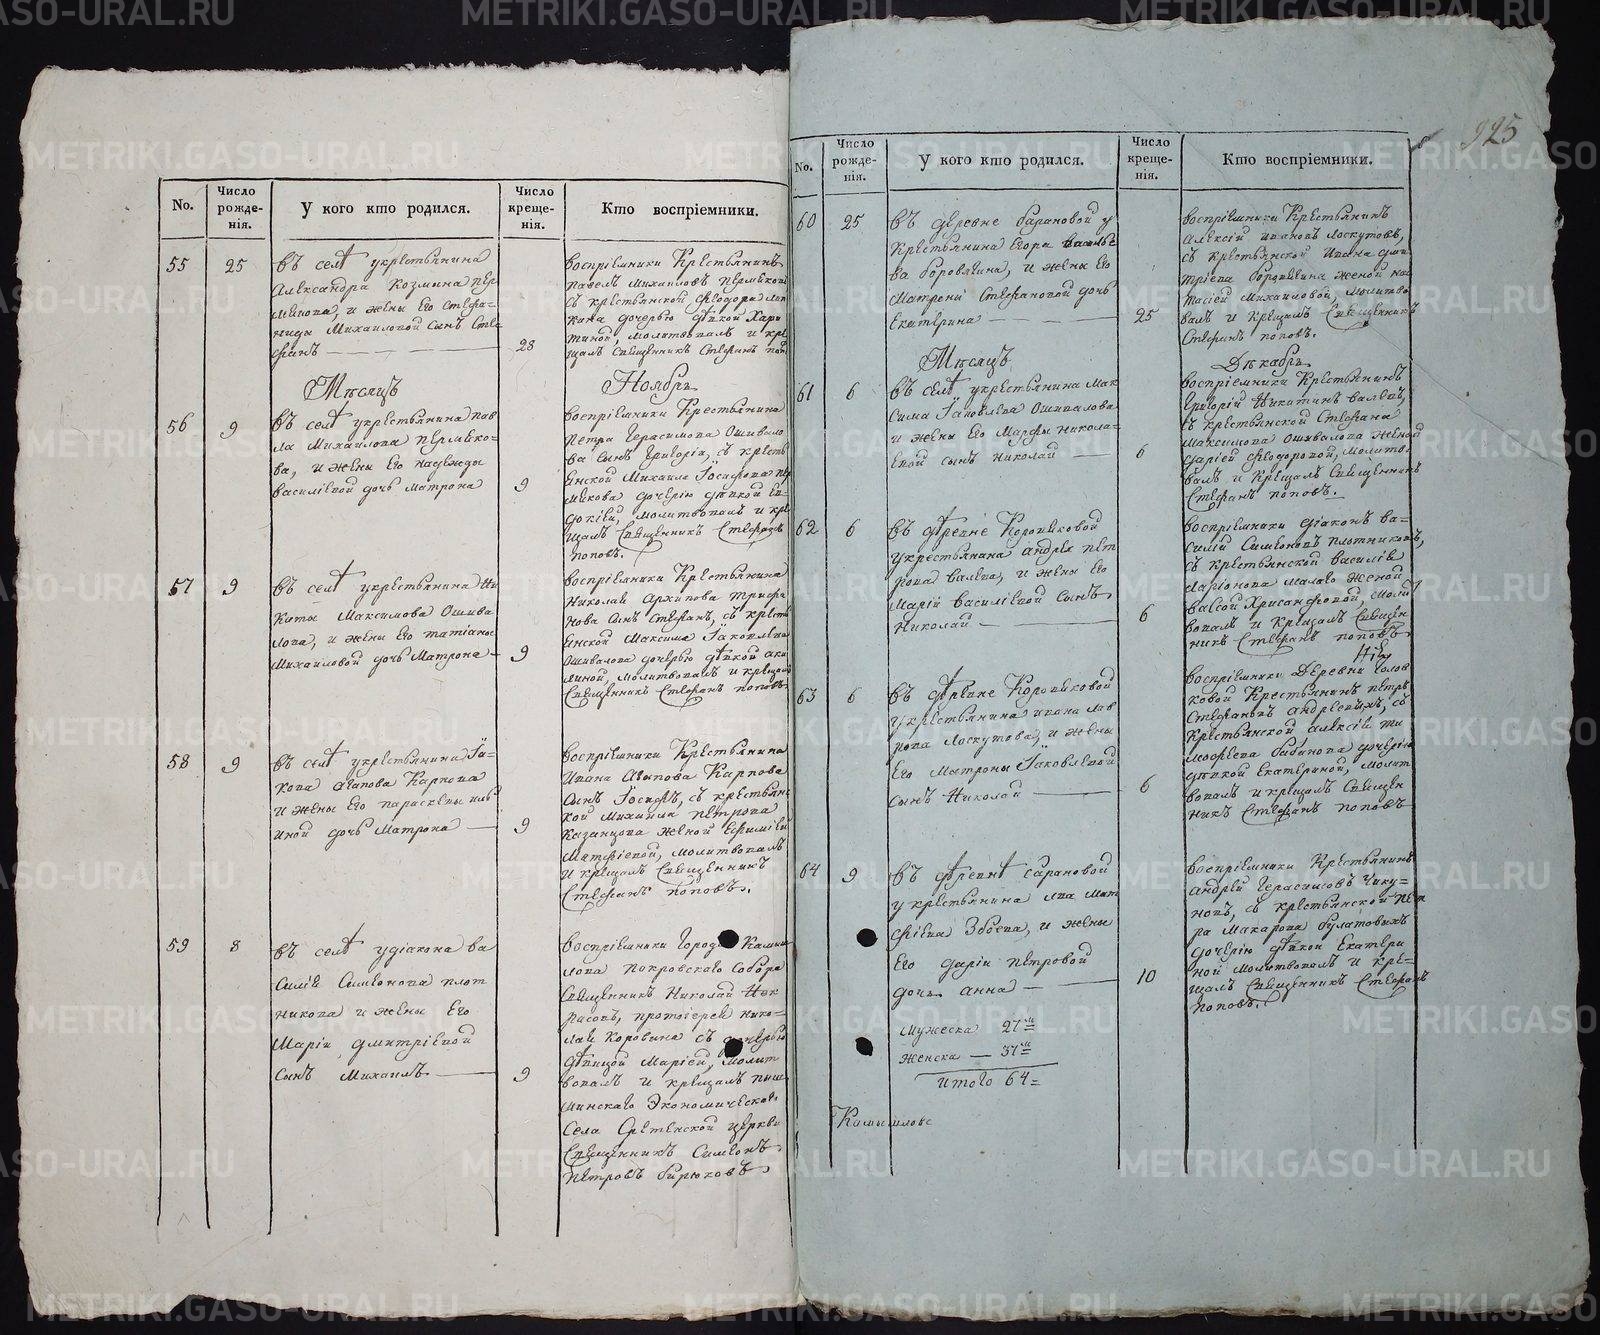 925
No.
Число рожде-нія.
У кого кто родился.
Число креще-нія.
Кто воспріемники.
55
25
въ селѣ укрестьянина
Александра Козмина пер
мекова, и жены его Степа-
ниды Михаиловой сынъ Сте
фанъ
28
воспріемники Крестьянинъ
павелъ Михаиловъ пермеков
съ крестьянской Феодора
дочерью дѣвкой Хари
тиной, молитвовалъ и кре
щалъ Священникъ Стефанъ поп
Мѣсяцъ
Ноябрь
56
9
въ селѣ укрестьянина пав
ла Михаилова пермеко-
ва, и жены его надежды
василіевой дочь матрона
9
воспріемники Крестьянина
петра Герасимова Ошивало
ва сынъ Григорій, съ кресть
янской Михаила Іосифова пер
мекова дочерію дѣвкой Ев-
докіей, молитвовалъ и кре
щалъ Священникъ Стефанъ
поповъ.
57
9
въ селѣ укрестьянина Ни
киты Максимова Ошива
лова, и жены его татіаны
Михаиловой дочь Матрона
9
воспріемники Крестьянина
николая Архипова Трифа
нова сынъ Стефанъ, съ кресть
янской Максима Іаковлева
Ошивалова дочерью дѣвкой аки
линой, молитвовалъ и крещалъ
Священникъ Стефанъ поповъ
58
9
въ селѣ укрестьянина Іа-
кова агапова Карпова
и жены его параскевы иль
иной дочь матрона
9
воспріемники Крестьянина
Ивана Агапова Карпова
сынъ Іосифъ, съ крестьянс
кой михаила петрова
Казанцова женой Ефиміей
Матфіевой, молитвовалъ
и крещалъ Священникъ
Стефанъ поповъ.
59
8
въ селѣ удіакона ва
силія Симеонова плот
никова и жены его
Маріи дмитріевой
сынъ Михаилъ
9
воспріемники Города Камыш
лова покровскаго собора
Священникъ Николай Нек
расовъ, протоіерея нико-
лая Коровина съ дочерью
дѣвицой Маріей, молит
вовалъ и крещалъ пыш
минскаго Экономическаго
села Сретенской церкви
Священникъ Симеонъ
петровъ бирюковъ
No.
Число рожде-нія.
У кого кто родился.
Число креще-нія.
Кто воспріемники.
60
25
въ деревне барановой у
Крестьянина Егора василье
ва боровякина, и жены его
Матрены Стефановой дочь
Екатерина
25
воспріемники Крестьянинъ
Алексій ивановъ лоскутовъ,
съ крестьянской Ивана дми
тріева женой нас
тасіей Михаиловой, молитво
валъ и крещалъ Священникъ
Стефанъ поповъ.
Мѣсяцъ
Декабрь
61
6
въ селѣ укрестьянина Мак
сима Іаковлева Ошивалова
и жены его Марфы никола-
евой сынъ николай
6
воспріемники Крестьянинъ
Григорій Никитинъ валовъ,
съ крестьянской Стефана
Максимова Ошивалова женой
даріей Феодоровой, молитво
валъ и Крещалъ Священникъ
Стефанъ поповъ.
62
6
въ деревне Коровяковой
укрестьянина андрея пет
рова валова, и жены его
Маріи василіевой сынъ
Николай
6
воспріемники діаконъ ва=
силій Симеоновъ плотниковъ,
съ крестьянской василія
иларіонова женой
вассой Хрисанфовой, молит
вовалъ и крещалъ Священ
никъ Стефанъ поповъ
63
6
въ деревне Коровяковой
укрестьянина ивана лав
рова лоскутова, и жены
его матроны Іаковлевой
сынъ Николай
6
воспріемники Деревни голов
ковой Крестьянинъ петръ
Стефановъ андреевыхъ, съ
крестьянской алексія ти
мофеева бабанова дочерію
дѣвкой Екатериной, молит
вовалъ и крещалъ Священ
никъ Стефанъ поповъ
64
9
въ деревнѣ сарановой
укрестьянина льва мат
фіева Зобова, и жены
его даріи петровой
дочь анна
10
воспріемники Крестьянинъ
андрей Герасимовъ Чику-
новъ, съ крестьянской пет
ра макарова булатовыхъ
дочерію дѣвкой Екатери
ной молитвовалъ и кре-
щалъ Священникъ Стефанъ
поповъ.
Мужеска 27
Женска — 37
Итого 64
Камышловс